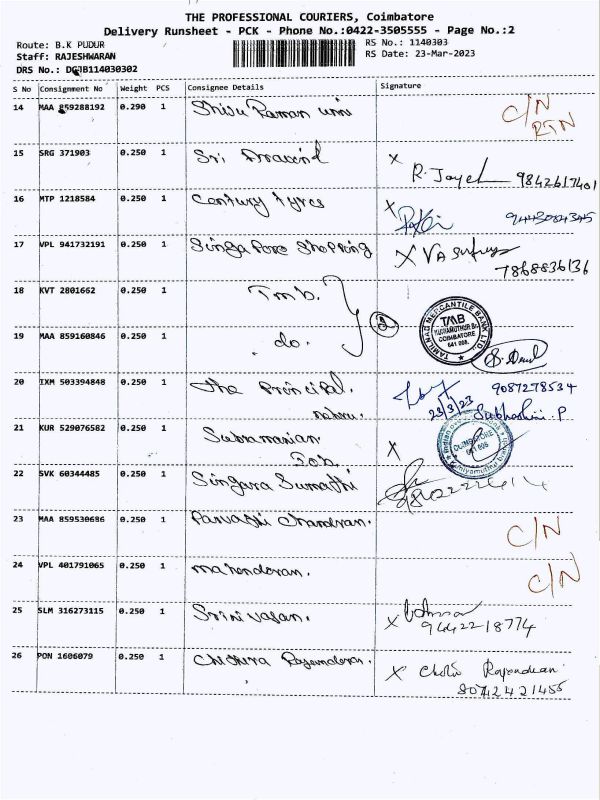 THE PROFESSIONAL COURIERS, Coimbatore
Delivery Runsheet - PCK - Phone No.:0422-3505555 - Page No.:2
Route: B.K PUDUR
RS No.: 1140303
Staff: RAJESHWARAN
RS Date: 23-Mar-2023
DRS No.: DGJB114030302
S No Consignment No Weight PCS Consignee Details Signature
14 MAA 859288192 0.290 1 Shisu Raman C/N
RTN
15 SRG 371903 0.250 1 Sri X R. 9842617401
16 MTP 1218584 0.250 1 Century Tyres X 9443084345
17 VPL 941732191 0.250 1 Singa Pore Shopping X 7868836136
18 KVT 2801662 0.250 1 Tmb. TAMILNAD MERCANTILE BANK LTD. TMB COIMBATORE 641 008.
19 MAA 859160846 0.250 1 do.
20 IXM 503394848 0.250 1 The Principal. 23/3/23 9087278534
Subhashini. P
21 KUR 529076582 0.250 1 Subramanian. X
22 SVK 60344485 0.250 1 Singara Sumathi
23 MAA 859530686 0.250 1 Parvathi Chandran. C/N
24 VPL 401791065 0.250 1 Mahendran. C/N
25 SLM 316273115 0.250 1 Srinivasan. X 9442218774
26 PON 1606079 0.250 1 Chithra Rajendran. X Rajendran